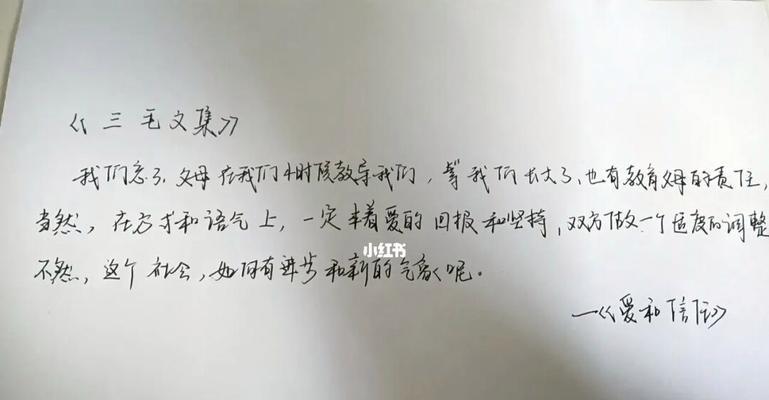 《三毛文集》
我们忘了,父母在我们小时候教导我们,等我们长大了,也有教育父母的责任,
当然,在方式和语气上,一定本着爱的回报和坚持,双方做一个适度的调整
不然,这个社会,如何有进步和新的气象呢。
小红书
—《爱和信任》